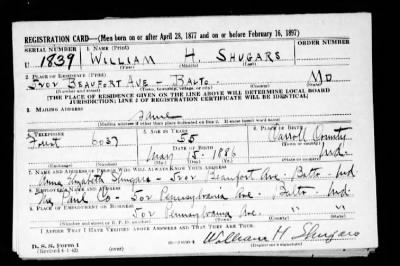 REGISTRATION CARD—(Men born on or after April 28, 1877 and on or before February 16, 1897)
SERIAL NUMBER 1. NAME (Print) ORDER NUMBER
U 1839 WILLIAM H. SHUGARS
(First) (Middle) (Last)
2. PLACE OF RESIDENCE (Print)
BEAUFORT AVE - BALTO. MD
(Number and street) (Town, township, village, or city) (County) (State)
[THE PLACE OF RESIDENCE GIVEN ON THE LINE ABOVE WILL DETERMINE LOCAL BOARD
JURISDICTION; LINE 2 OF REGISTRATION CERTIFICATE WILL BE IDENTICAL]
3. MAILING ADDRESS
Same
[Mailing address if other than place indicated on line 2. If same insert word same]
4. TELEPHONE 5. AGE IN YEARS 6. PLACE OF BIRTH
Forest 6037 55 Carroll County
DATE OF BIRTH
May 15 1886 Md.
(Exchange) (Number) (Mo.) (Day) (Yr.) (State or country)
7. NAME AND ADDRESS OF PERSON WHO WILL ALWAYS KNOW YOUR ADDRESS
Anna Elizabeth Shugars - Beaufort Ave - Balto - Md
8. EMPLOYER'S NAME AND ADDRESS
Paul Co - 502 Pennsylvania Ave. Balto - Md
9. PLACE OF EMPLOYMENT OR BUSINESS
502 Pennsylvania Ave. " "
(Number and street or R. F. D. number) (Town) (County) (State)
I AFFIRM THAT I HAVE VERIFIED ABOVE ANSWERS AND THAT THEY ARE TRUE.
D. S. S. Form 1
(Revised 4-1-42) William H Shugars